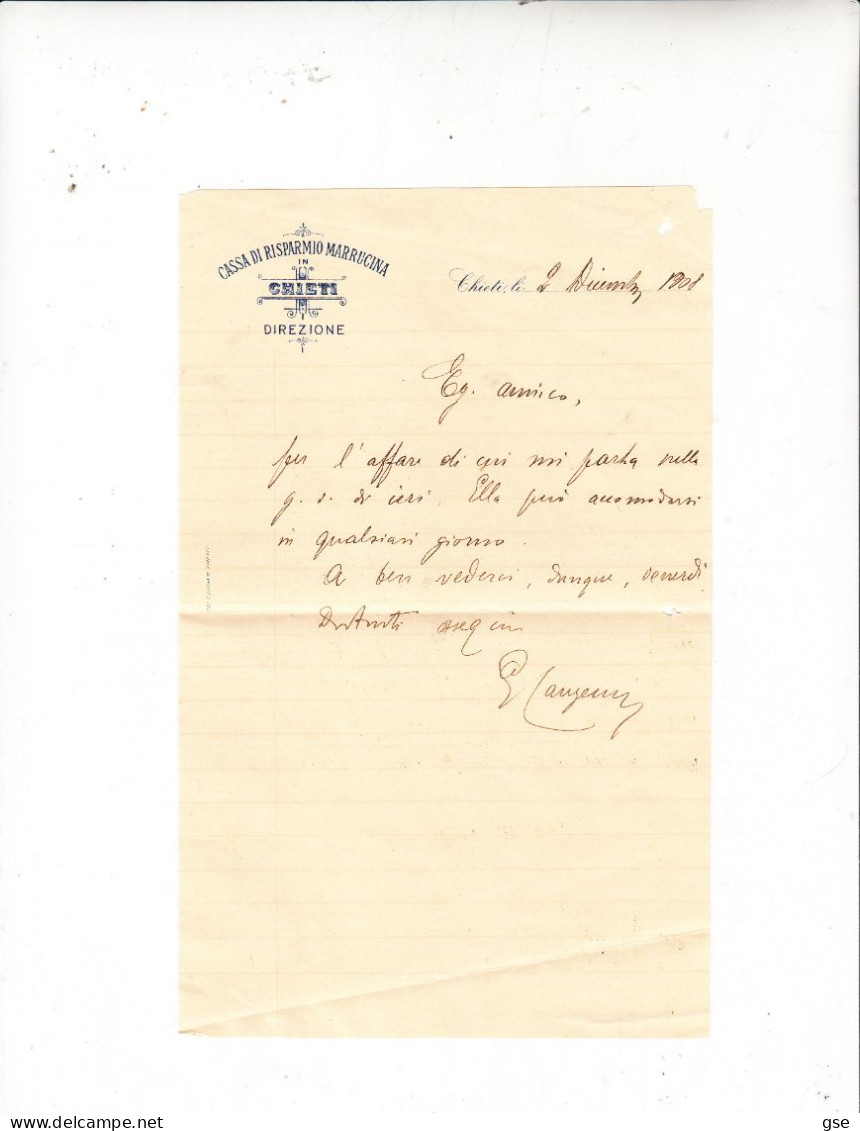 CASSA DI RISPARMIO MARRUCINA
IN
CHIETI
DIREZIONE
Chieti, li 2 Dicembre 1908
Eg. amico,
per l'affare di cui mi parla nella
g. s. di ieri, Ella può accomodarsi
in qualsiasi giorno.
A ben vederci, dunque, venerdì.
Distinti ossequi
delcampe.net
gse